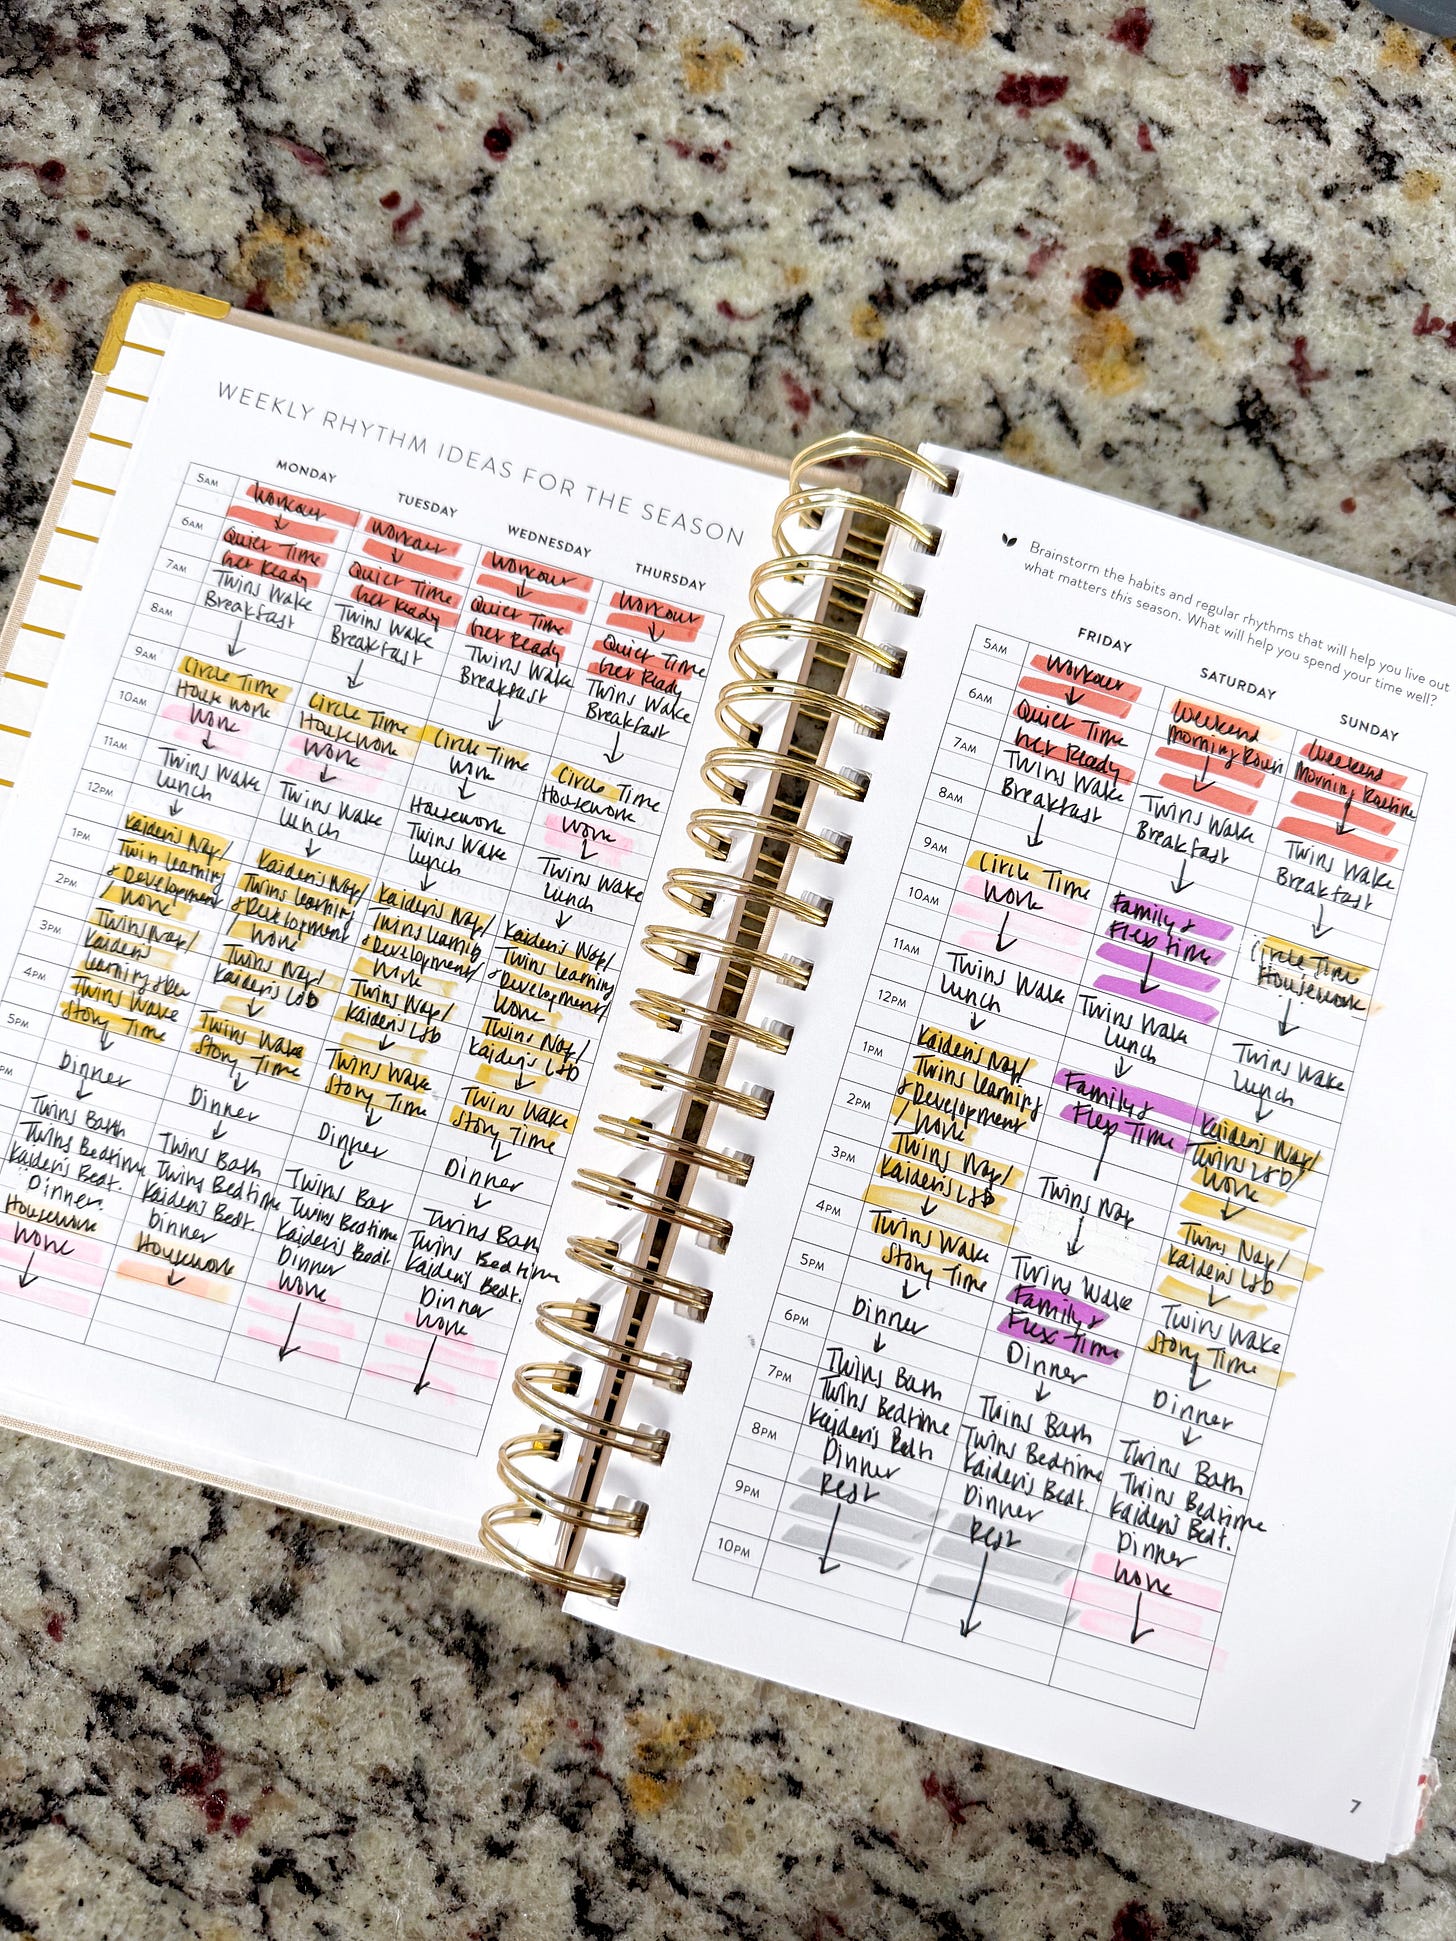 WEEKLY RHYTHM IDEAS FOR THE SEASON
MONDAY
5AM
6AM
7AM
8AM
9AM
10AM
11AM
12PM
1PM
2PM
3PM
4PM
5PM
PM
Workout
Quiet Time
Get Ready
Twins Wake
Breakfast
Circle Time
House work
Work
Twins Wake
Lunch
Kaiden's Nap/
Twin Learning
& Development
/ Work
Twins Nap/
Kaiden's
Learning & Dev
Twins Wake
Story Time
Dinner
Twins Bath
Twins Bedtime
Kaiden's Bedt.
Dinner
Housework
Work
TUESDAY
Workout
Quiet Time
Get Ready
Twins Wake
Breakfast
Circle Time
Housework
Work
Twins Wake
Lunch
Kaiden's Nap/
Twins Learning
& Development
/ Work
Twins Nap/
Kaiden's L&D
Twins Wake
Story Time
Dinner
Twins Bath
Twins Bedtime
Kaiden's Bedt.
Dinner
Housework
WEDNESDAY
Workout
Quiet Time
Get Ready
Twins Wake
Breakfast
Circle Time
Work
Housework
Twins Wake
Lunch
Kaiden's Nap/
Twins Learning
& Development/
Work
Twins Nap/
Kaiden's L&D
Twins Wake
Story Time
Dinner
Twins
Twins Bedtime
Kaiden's Bedt.
Dinner
Work
THURSDAY
Workout
Quiet Time
Get Ready
Twins Wake
Breakfast
Circle Time
Housework
Work
Twins Wake
Lunch
Kaiden's Nap/
Twins Learning
& Development/
Work
Twins Nap/
Kaiden's L&D
Twins Wake
Story Time
Dinner
Twins Bath
Twins Bedtime
Kaiden's Bedt.
Dinner
Work
Brainstorm the habits and regular rhythms that will help you live out
what matters this season. What will help you spend your time well?
FRIDAY
5AM
6AM
7AM
8AM
9AM
10AM
11AM
12PM
1PM
2PM
3PM
4PM
5PM
6PM
7PM
8PM
9PM
10PM
Workout
Quiet Time
Get Ready
Twins Wake
Breakfast
Circle Time
Work
Twins Wake
Lunch
Kaiden's Nap/
Twins Learning
& Development
/ Work
Twins Nap/
Kaiden's L&D
Twins Wake
Story Time
Dinner
Twins Bath
Twins Bedtime
Kaiden's Bedt
Dinner
Rest
SATURDAY
Weekend
Morning Routin
Twins Wake
Breakfast
Family &
Flex Time
Twins Wake
Lunch
Family &
Flex Time
Twins Nap
Twins Wake
Family &
Flex Time
Dinner
Twins Bath
Twins Bedtime
Kaiden's Bedt.
Dinner
Rest
SUNDAY
Weekend
Morning Routine
Twins Wake
Breakfast
Circle Time
Housework
Twins Wake
Lunch
Kaiden's Nap/
Twins L&D/
Work
Twins Nap/
Kaiden's L&D
Twins Wake
Story Time
Dinner
Twins Bath
Twins Bedtime
Kaiden's Bedt.
Dinner
Work
7